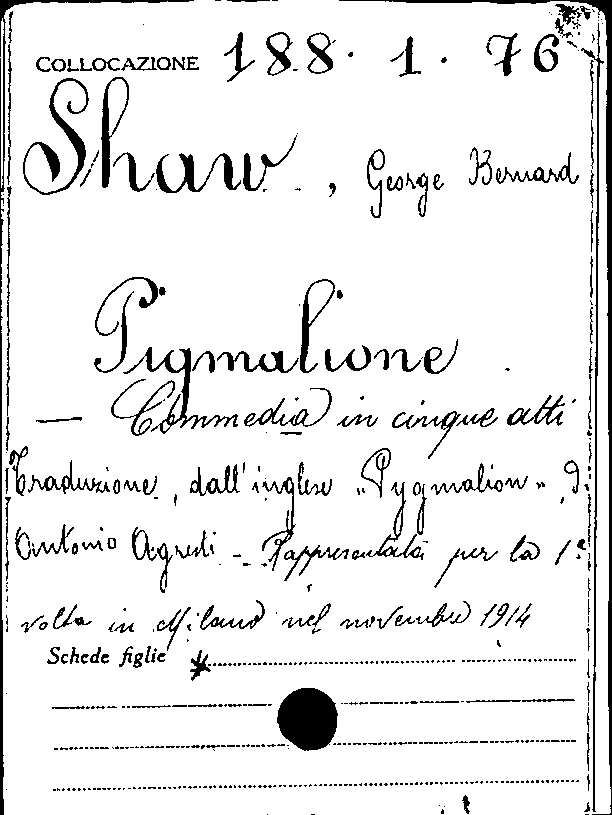 COLLOCAZIONE 188. 1. 76
Shaw, George Bernard
Pigmalione
— Commedia in cinque atti
Traduzione, dall'inglese „Pygmalion" di
Antonio Agresti - Rappresentata per la 1ª
volta in Milano nel novembre 1914
Schede figlie *